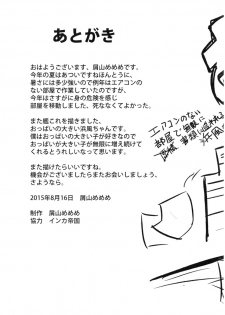 あとがき
おはようございます、肩山めめめです。
今年の夏はあついですねほんとうに、
暑さには多少強いので例年はエアコンの
ない部屋で作業していたのですが、
今年はさすがに身の危険を感じ
部屋を移動しました、死ななくてよかった。
また艦これを描きました、
おっぱいの大きい浜風ちゃんです。
僕はおっぱいが大きい子が好きなので
おっぱいが大きい子が無限に増え続けて
くれるとうれしいなって思います。
また描けたらいいですね、
機会がございましたらまたお会いしましょう、
さようなら。
2015年8月16日　肩山めめめ
制作　肩山めめめ
協力　インカ帝国
エアコンのない
部屋で無駄に